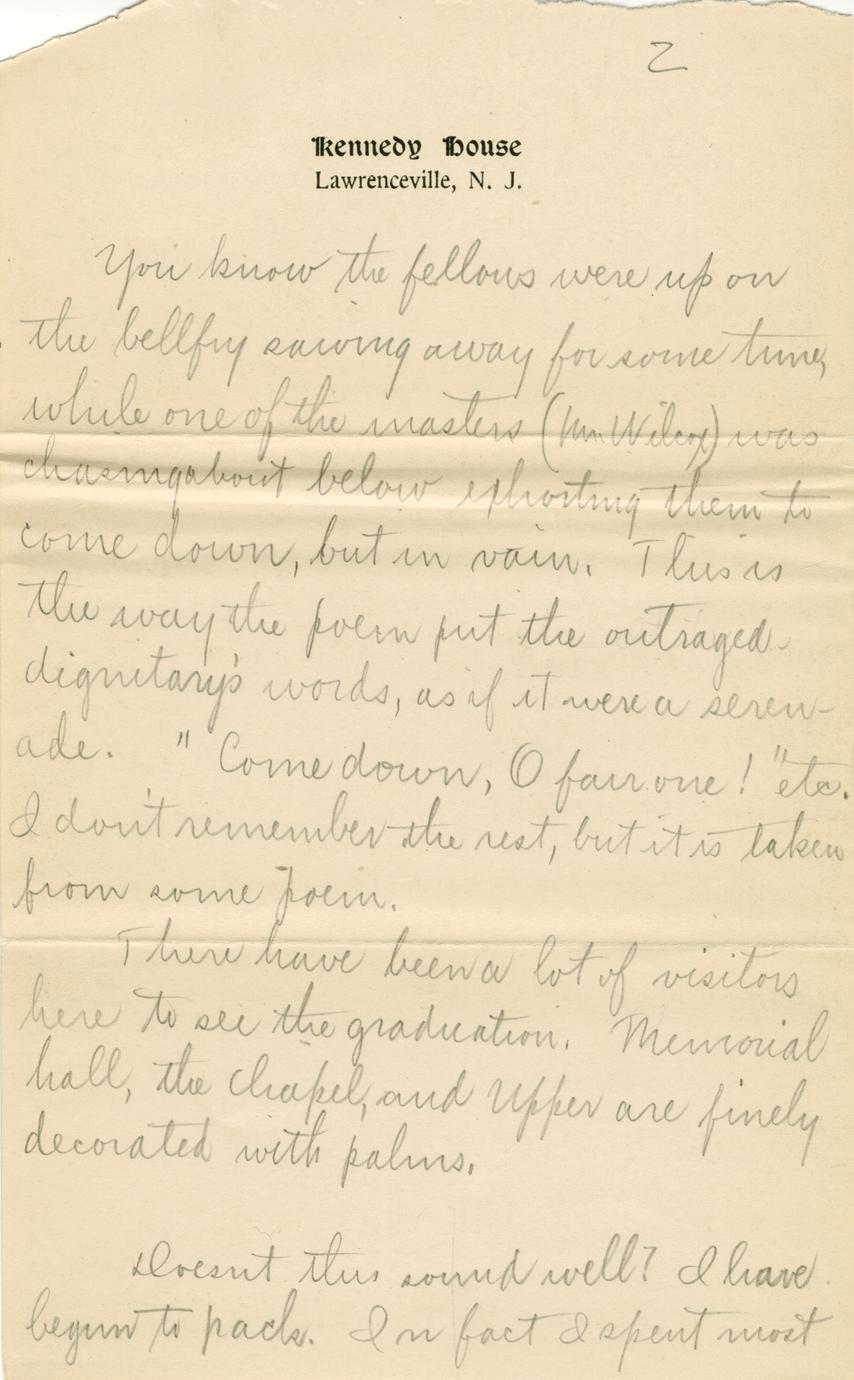 2
Kennedy House
Lawrenceville, N. J.
You know the fellows were up on
the bellfry sawing away for some time,
while one of the masters (Mr. Wilcox) was
chasing about below exhorting them to
come down, but in vain. This is
the way the poem put the outraged
dignitary's words, as if it were a seren-
ade. "Come down, O fair one!" etc.
I don't remember the rest, but it is taken
from some poem.
There have been a lot of visitors
here to see the graduation. Memorial
hall, the chapel, and Upper are finely
decorated with palms.
Doesn't this sound well? I have
begun to pack. In fact I spent most